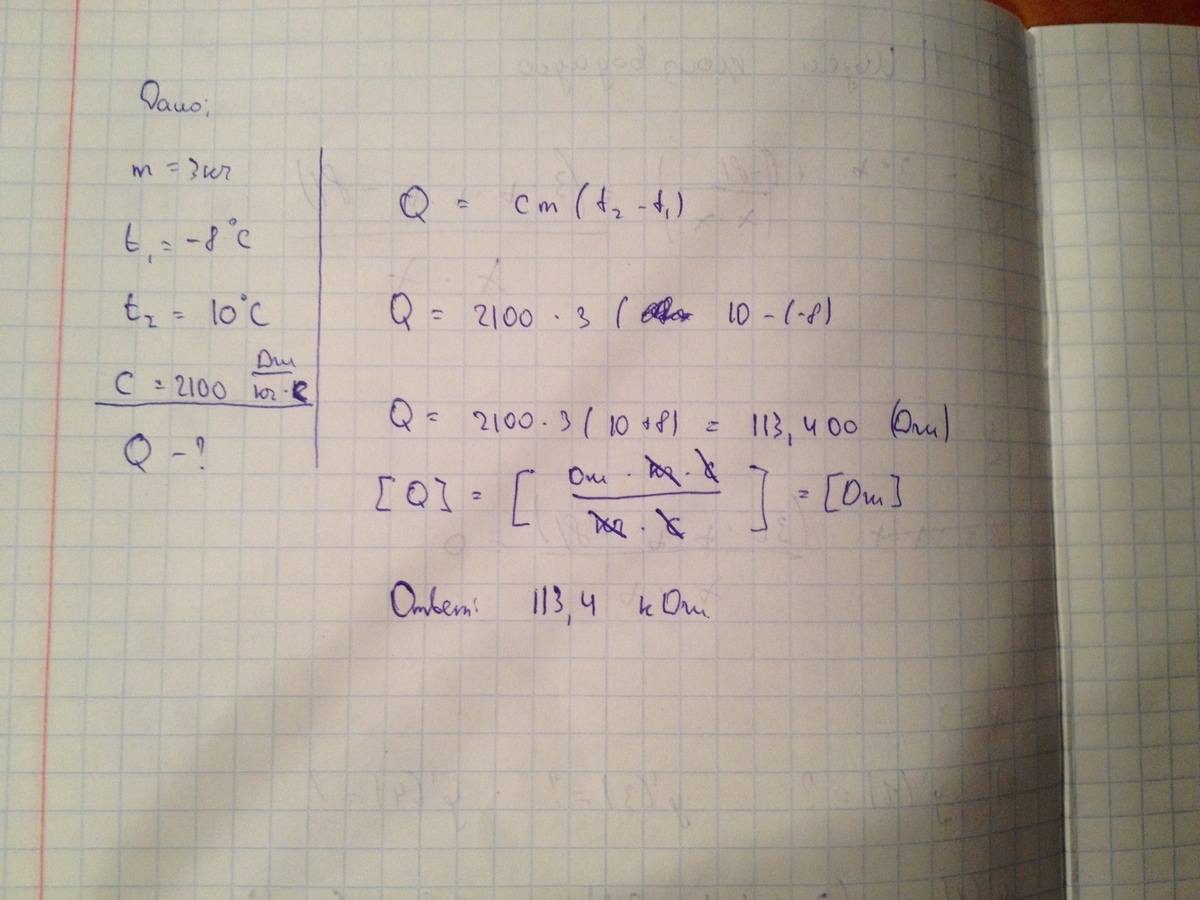 Дано:
m = 3 кг
t₁ = -8°C
t₂ = 10°C
C = 2100 Дж/кг·K
Q - ?
Q = cm (t₂ - t₁)
Q = 2100 · 3 ( 10 - (-8)
Q = 2100 · 3 ( 10 + 8) = 113,400 (Дж)
[Q] = [Дж · кг · K / кг · K] = [Дж]
Ответ: 113,4 кДж